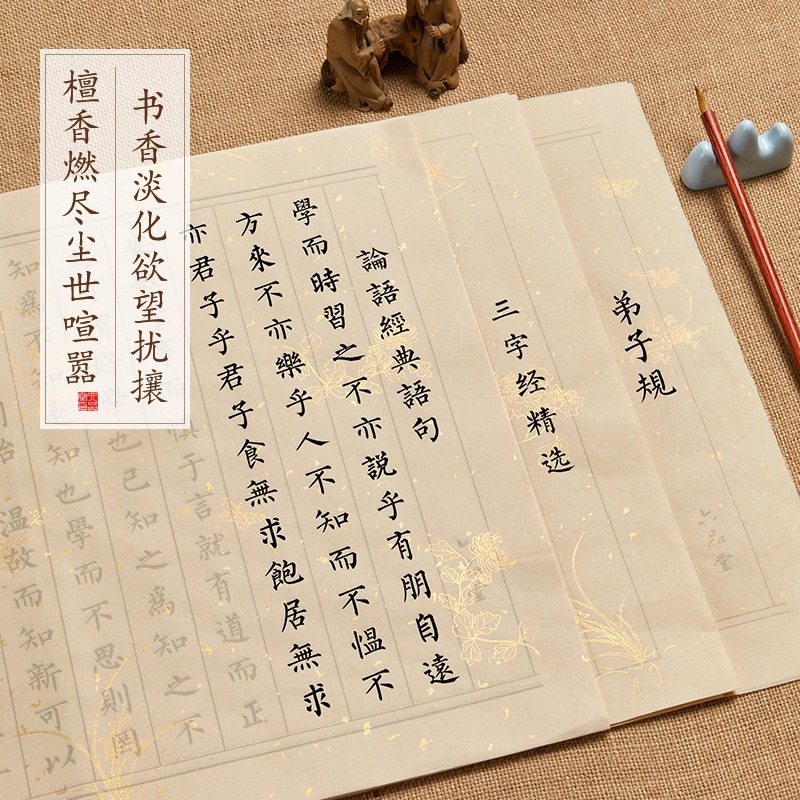 书香淡化欲望扰攘
檀香燃尽尘世喧嚣
弟子規
六品堂
三字经精选
論語經典語句
學而時習之不亦説乎有朋自遠
方來不亦樂乎人不知而不愠不
亦君子乎君子食無求飽居無求
慎于言就有道而正
也已知之爲知之不
知爲不知也學而不思則罔
殆温故而知新可以